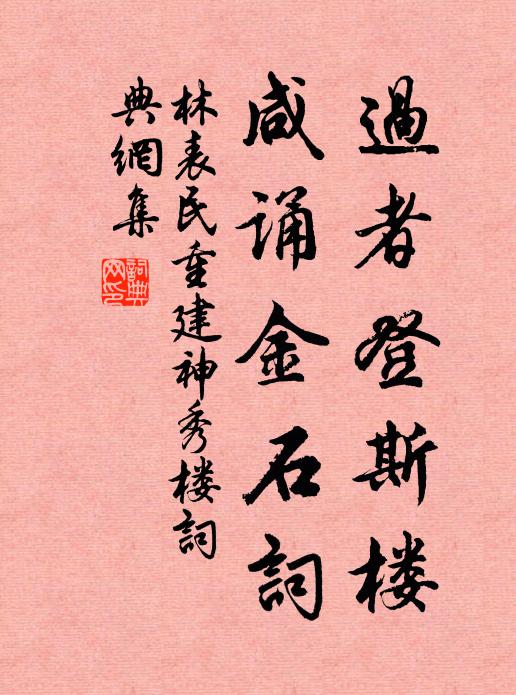 過者登斯楼
咸诵金石詞
林表民重建神秀楼詞
典網集
詞典
网印